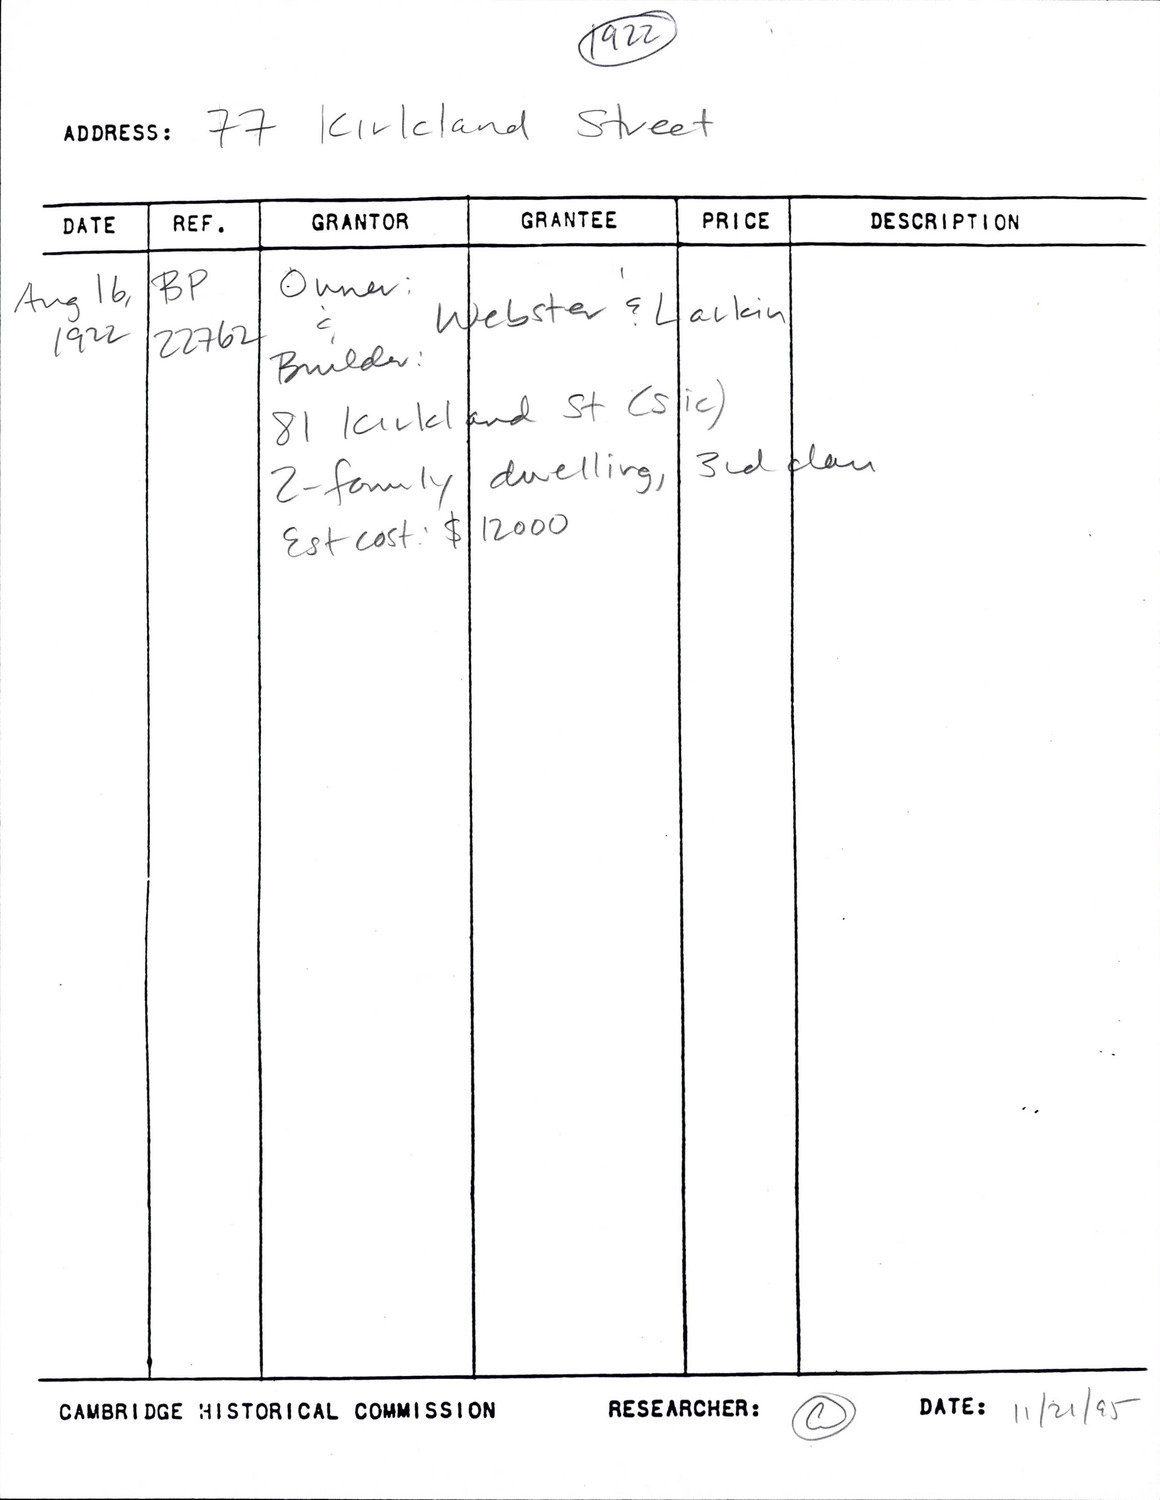 1922
ADDRESS: 77 Kirkland Street
DATE REF. GRANTOR GRANTEE PRICE DESCRIPTION
Aug 16, 1922 BP 22762 Owner: & Builder: Webster & Larkin
81 Kirkland St (sic)
2-family dwelling, 3rd class
Est cost: $12000
CAMBRIDGE HISTORICAL COMMISSION RESEARCHER: DATE: 11/21/95